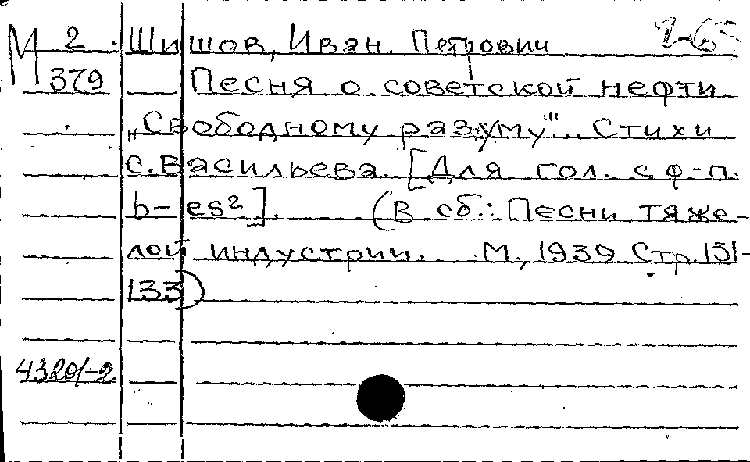 М 2 Шишов, Иван Петрович 2-65
379 Песня о советской нефти
„Свободному разуму". Стихи
С. Васильева. [Для гол. с ф-п.
b-es²]. (В сб.: Песни тяже-
лой индустрии. М., 1939 Стр. 131-
133)
4320/-2